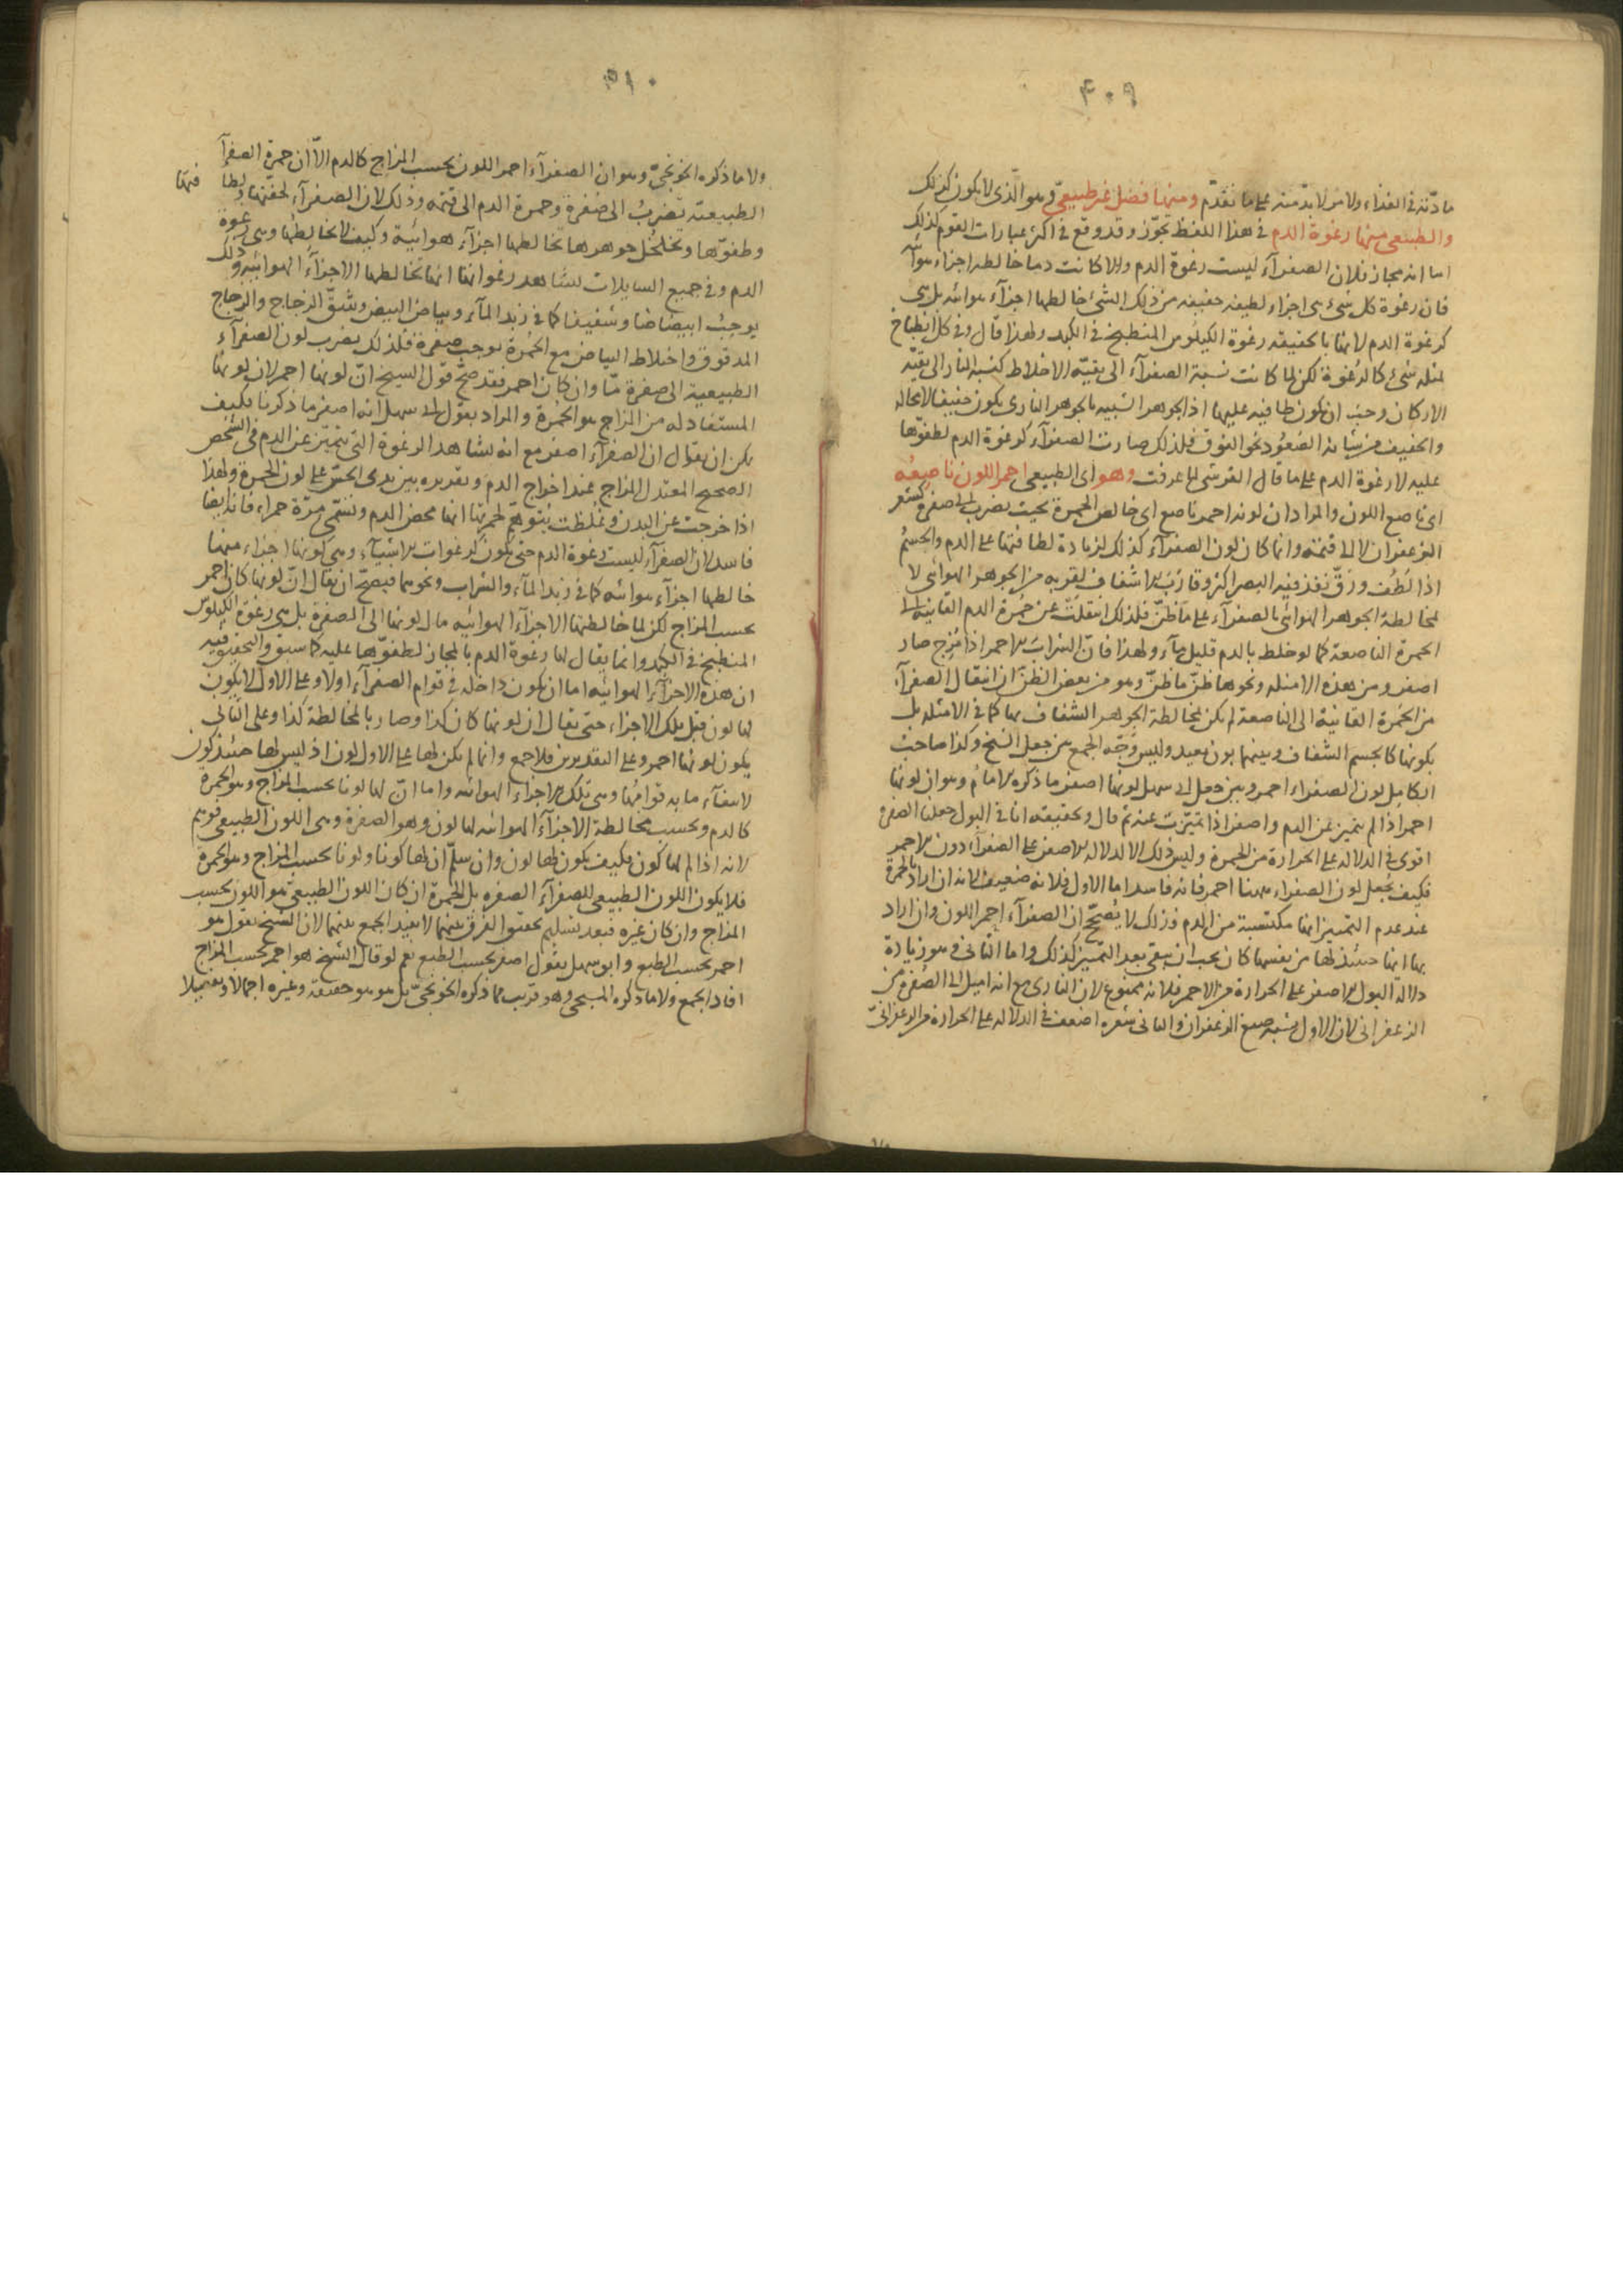 ٣٠٩
مادّته في الغذاء ولا من لا بدّ منه على ما تقدّم ومنها فضل غير طبيعيّ وهو الّذي لا يكون كذلك
والطبيعي منها رغوة الدم في هذا اللفظ تجوّز وقد وقع في اكثر عبارات القوم كذلك
اما انه مجاز فلان الصفرآء ليست رغوة الدم والا كانت دما خالطه اجزاء هوائيه
فان رغوة كل شيء هي اجزاء لطيفه خفيفه من ذلك الشئ خالطها اجزآء هوائيه بل هي
كرغوة الدم لانها بالحقيقه رغوة الكيلوس المنطبخ في الكبد ولهذا قال وفي كل انطباخ
لمثله شئ كالرغوة لكن لما كانت نسبة الصفرآء الى بقيّة الاخلاط كنسبة النار الى بقيّه
الاركان وجب ان يكون طافيه عليها اذ الجوهر الشبيه بالجوهر الناري يكون خفيفا لا محاله
والخفيف من شانه الصعود نحو الفوق فلذلك صارت الصفرآء كرغوة الدم لطفوّها
عليه لا رغوة الدم على ما قال القرشي لما عرفت وهو اي الطبيعي احمر اللون ناصعه
اي ناصع اللون والمراد ان لونه احمر ناصع اي خالص الحمرة بحيث يضرب الى صفرة كشعر
الزعفران لا الى قتمة وانما كان لون الصفرآء كذلك لزيادة لطافتها على الدم والجسم
اذا لطف ورقّ نفذ فيه البصر اكثر وقارب الاشفاف لقربه من الجوهر الهوائي لا
لمخالطة الجوهر الهوائي بالصفرآء على ما ظنّ فلذلك انتقلت عن حمرة الدم القانية الى
الحمرة الناصعة كما لو خلط بالدم قليل مآء ولهذا فانّ الشراب الاحمر اذا مزج صار
اصفر ومن هذه الامثله ونحوها ظنّ ما ظنّ وهو من بعض الظنّ ان انتقال الصفرآء
من الحمرة القانية الى الناصعة لم يكن لمخالطة الجوهر الشفاف بها كما في الامثله بل
بكونها كالجسم الشفاف وبينهما بون بعيد وليس وجه الجمع بين جعل الشيخ وكذا صاحب
الكامل لون الصفراء احمر وبين جعل ابي سهل لونها اصفر ما ذكره الامام وهو ان لونها
احمر اذا لم يتميز عن الدم واصفر اذا تميّزت عنه ثم قال وتحقيقه انا في البول جعلنا الصفرة
اقوى في الدلاله على الحرارة من الحمرة وليس ذلك الا لدلاله الاصفر على الصفرآء دون الاحمر
فكيف يجعل لون الصفراء ههنا احمر فانه فاسد اما الاول فلانه ضعيف لانه ان اراد بالحمرة
عند عدم التمييز انها مكتسبة من الدم فذلك لا يصحّح ان الصفرآء احمر اللون وان اراد
بها انها حينئذ لها من نفسها كان يجب ان يبقى بعد التمييز كذلك واما الثاني فهو زيادة
دلالة البول الاصفر على الحرارة من الاحمر فلانه ممنوع لان الناري مع انه اميل الى الصفرة من
الزعفراني لان الاول يشبه صبغ الزعفران والثاني شعره اضعف في الدلاله على الحرارة من الزعفرانيّ
٣١٠
ولا ما ذكره الخونجيّ وهو ان الصفرآء احمر اللون بحسب المزاج كالدم الاّ ان حمرة الصفرآء
الطبيعيّه تضرب الى صفرة وحمرة الدم الى قتمه وذلك لان الصفرآء لخفّتها ولطافتها
وطفوّها وتخلخل جوهرها تخالطها اجزآء هوائية وكيف لا تخالطها وهي رغوة
الدم وفي جميع السايلات نشاهد رغواتها انها تخالطها الاجزآء الهوائيه وذلك
يوجب ابيضاضا وشفيفا كما في زبد المآء وبياض البيض وشقّ الزجاج والزجاج
المدقوق واختلاط البياض مع الحمرة يوجب صفرة فلذلك يضرب لون الصفرآء
الطبيعية الى صفرة ما وان كان احمر فقد صحّ قول الشيخ انّ لونها احمر لان لونها
المستفاد له من المزاج هو الحمرة والمراد بقول ابي سهل انه اصفر ما ذكرنا فكيف
يمكن ان يقال ان الصفرآء اصفر مع انه نشاهد الرغوة التي تتميّز عن الدم في الشخص
الصحيح المعتدل المزاج عند اخراج الدم وتقديره بين يدى الحسّ على لون الحمرة ولهذا
اذا خرجت عن البدن وغلظت يتوهّم لحمرتها انها محض الدم وتسمّى مرّة حمراء فانه ايضا
فاسد لان الصفرآء ليست رغوة الدم حتى تكون كرغوات الاشيآء وهي كونها اجزاء منها
خالطها اجزآء هوائيه كما في زبد المآء والشراب ونحوهما فيصحّ ان يقال انّ لونها كان احمر
بحسب المزاج لكن لما خالطتها الاجزآء الهوائيه مال لونها الى الصفرة بل هي رغوة الكيلوس
المنطبخ في الكبد وانما يقال لها رغوة الدم بالمجاز لطفوّها عليه كما سبق والتحقيق فيه
ان هذه الاجزآء الهوائيه اما ان يكون داخله في قوام الصفرآء اولا وعلى الاول لا يكون
لها لون قبل تلك الاجزاء حتى يقال ان لونها كان كذا وصار بالمخالطة كذا وعلى الثاني
يكون لونها احمر وعلى التقديرين فلا جمع وانما لم يكن لها على الاول لون اذ ليس لها حينئذ كون
لانتفآء ما به قوامها وهي تلك الاجزاء الهوائيه واما انّ لها لونا بحسب المزاج وهو الحمرة
كالدم وبحسب مخالطة الاجزآء الهوائيه لها لون وهو الصفرة وهي اللون الطبيعي فوهم
لانه اذا لم لها كون فكيف يكون لها لون وان سلّم ان لها كونا ولونا بحسب المزاج وهو الحمرة
فلا يكون اللون الطبيعي للصفرآء الصفره بل الحمرة ان كان اللون الطبيعيّ هو اللون بحسب
المزاج وان كان غيره فبعد تسليم تحقق الفرق بينهما لا يفيد الجمع بينهما لان الشيخ يقول هو
احمر بحسب الطبع وابو سهل يقول اصفر بحسب الطبع نعم لو قال الشيخ هو احمر بحسب المزاج
افاد الجمع ولا ما ذكره المسيحي وهو قريب مما ذكره الخونجيّ بل هو هو حقيقة وغيره اجمالا وتفصيلا